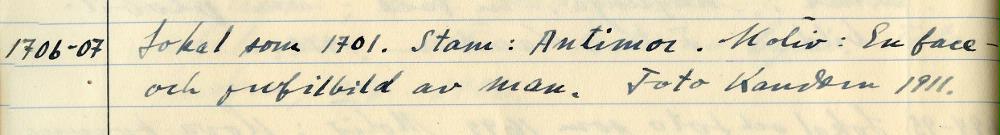 1706-07 Lokal som 1701. Stam: Antimoc. Motiv: En face-
och profilbild av man. Foto Kandern 1911.